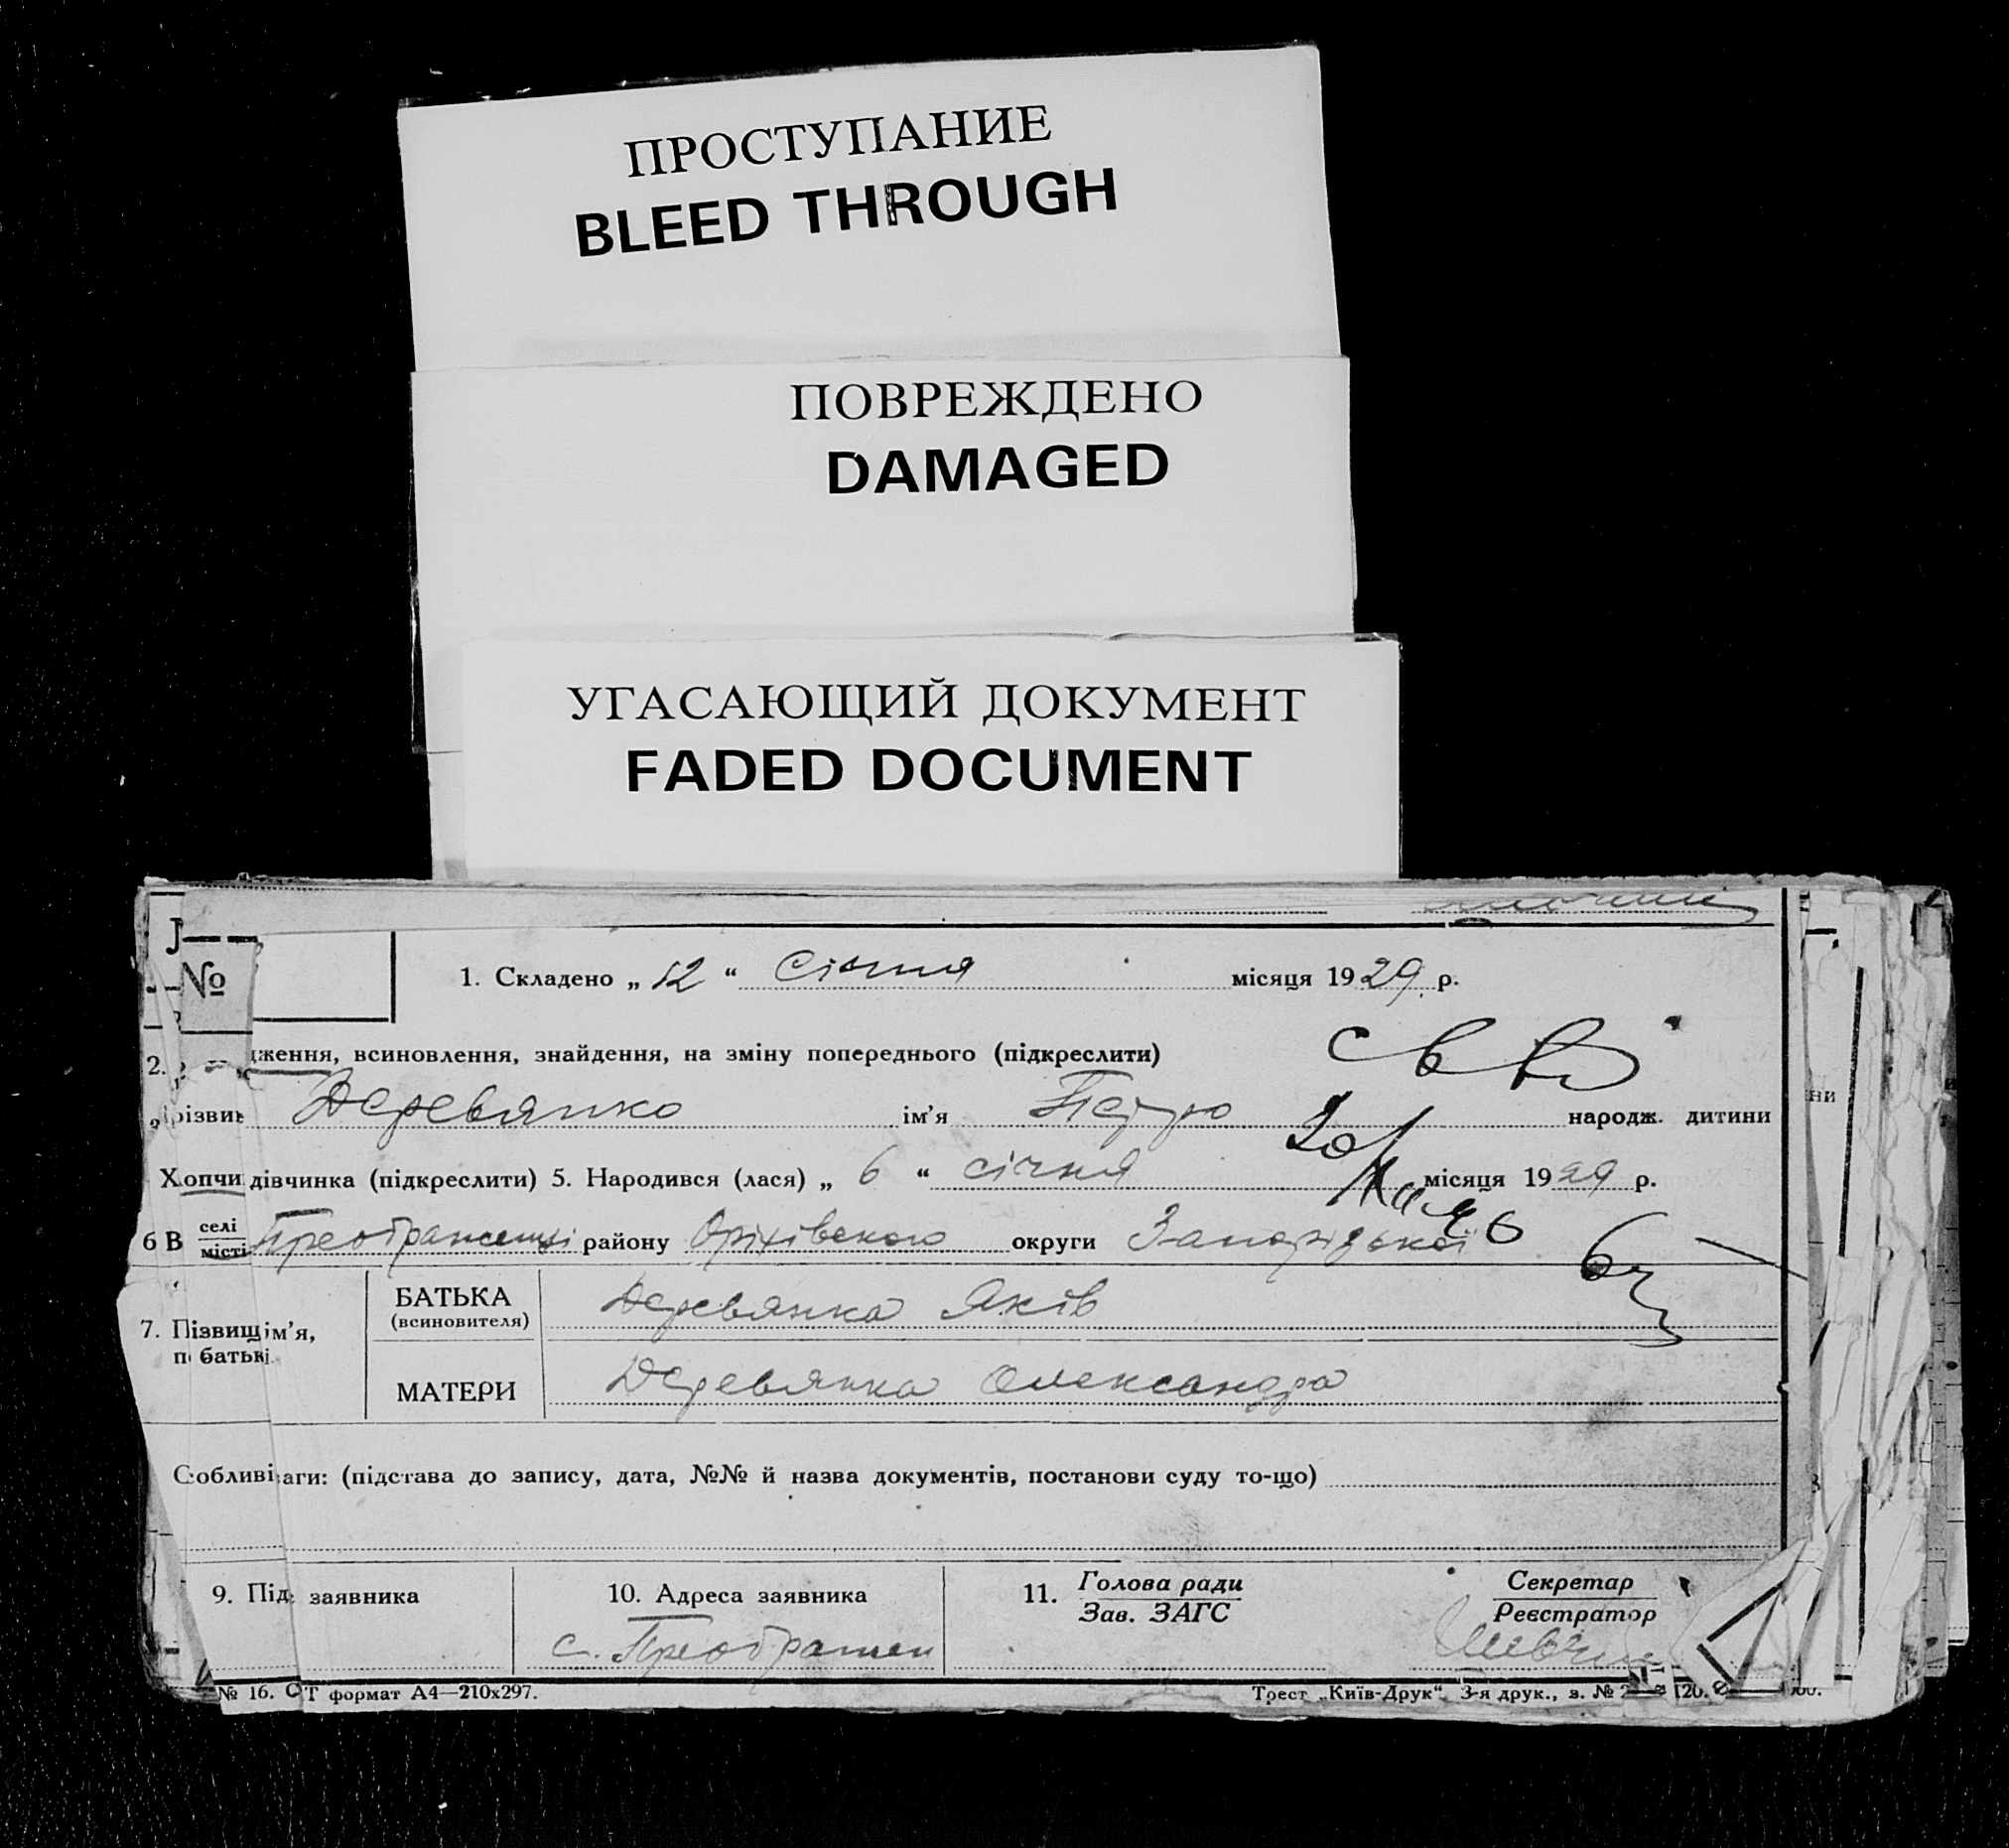 ПРОСТУПАНИЕ
BLEED THROUGH
ПОВРЕЖДЕНО
DAMAGED
УГАСАЮЩИЙ ДОКУМЕНТ
FADED DOCUMENT
№
1. Складено „ 12 “ січня місяця 1929 р.
2. дження, всиновлення, знайдення, на зміну попереднього (підкреслити)
різви Деревянко ім’я Петро народж. дитини
Хопчи дівчинка (підкреслити) 5. Народився (лася) „ 6 “ січня місяця 1929 р.
6 В селі
місті Преображенці району Оріхівского округи Запорізької
7. Пізвищ ім’я,
п батькі
БАТЬКА
(всиновителя)
Деревянко Яків
МАТЕРИ Деревянко Олександра
Собливі аги: (підстава до запису, дата, №№ й назва документів, постанови суду то-що)
9. Під заявника
10. Адреса заявника
с. Преображен
11. Голова ради
Зав. ЗАГС
Секретар
Реєстратор
№ 16. СТ формат А4—210х297.
Трест „Київ-Друк“ 3-я друк., з. №